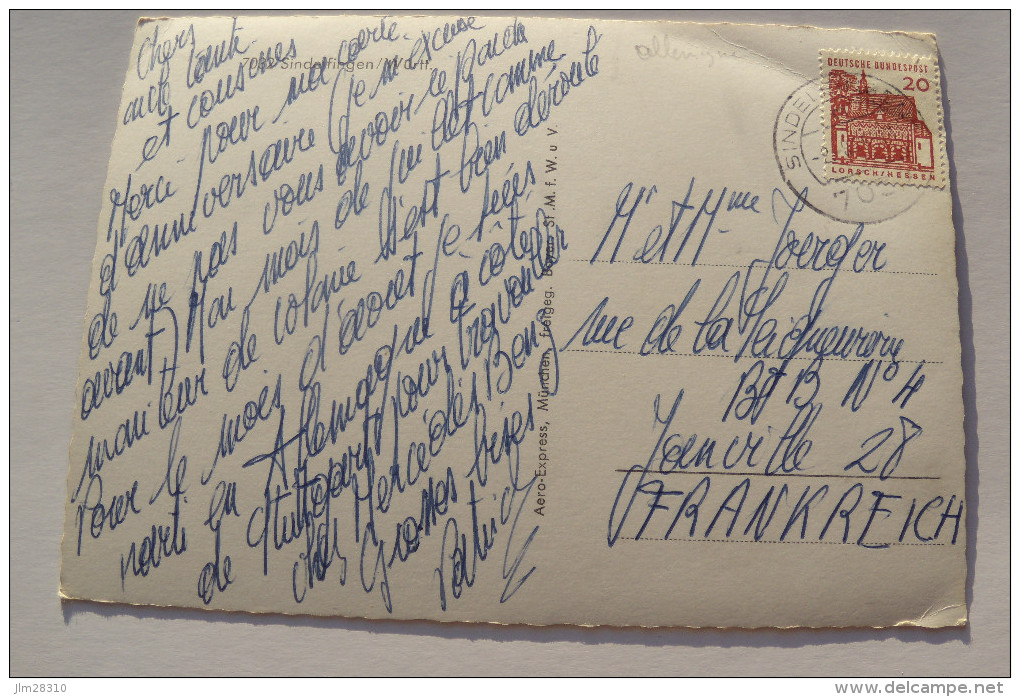 7032 Sindelfingen / Württ.
Chers
oncle tante
et cousines
Merci pour ma carte
d'anniversaire (je m'excuse
de ne pas vous avoir le
avant) Mon mois de juillet comme
moniteur de colonie s'est bien déroulé
Pour le mois d'août je suis
parti en Allemagne à côté
de Stuttgart pour travailler
chez Mercedes Benz
Grosses bises
Patrick
Aero-Express, München, freigeg. Bayer. St.M.f.W.u.V.
allemagne
DEUTSCHE BUNDESPOST
20
LORSCH/HESSEN
SINDEL
703
Mr et Mme Joerger
rue de la Seigneurie
Bt B N° 4
Janville 28
FRANKREICH
jlm28310
www.delcampe.net